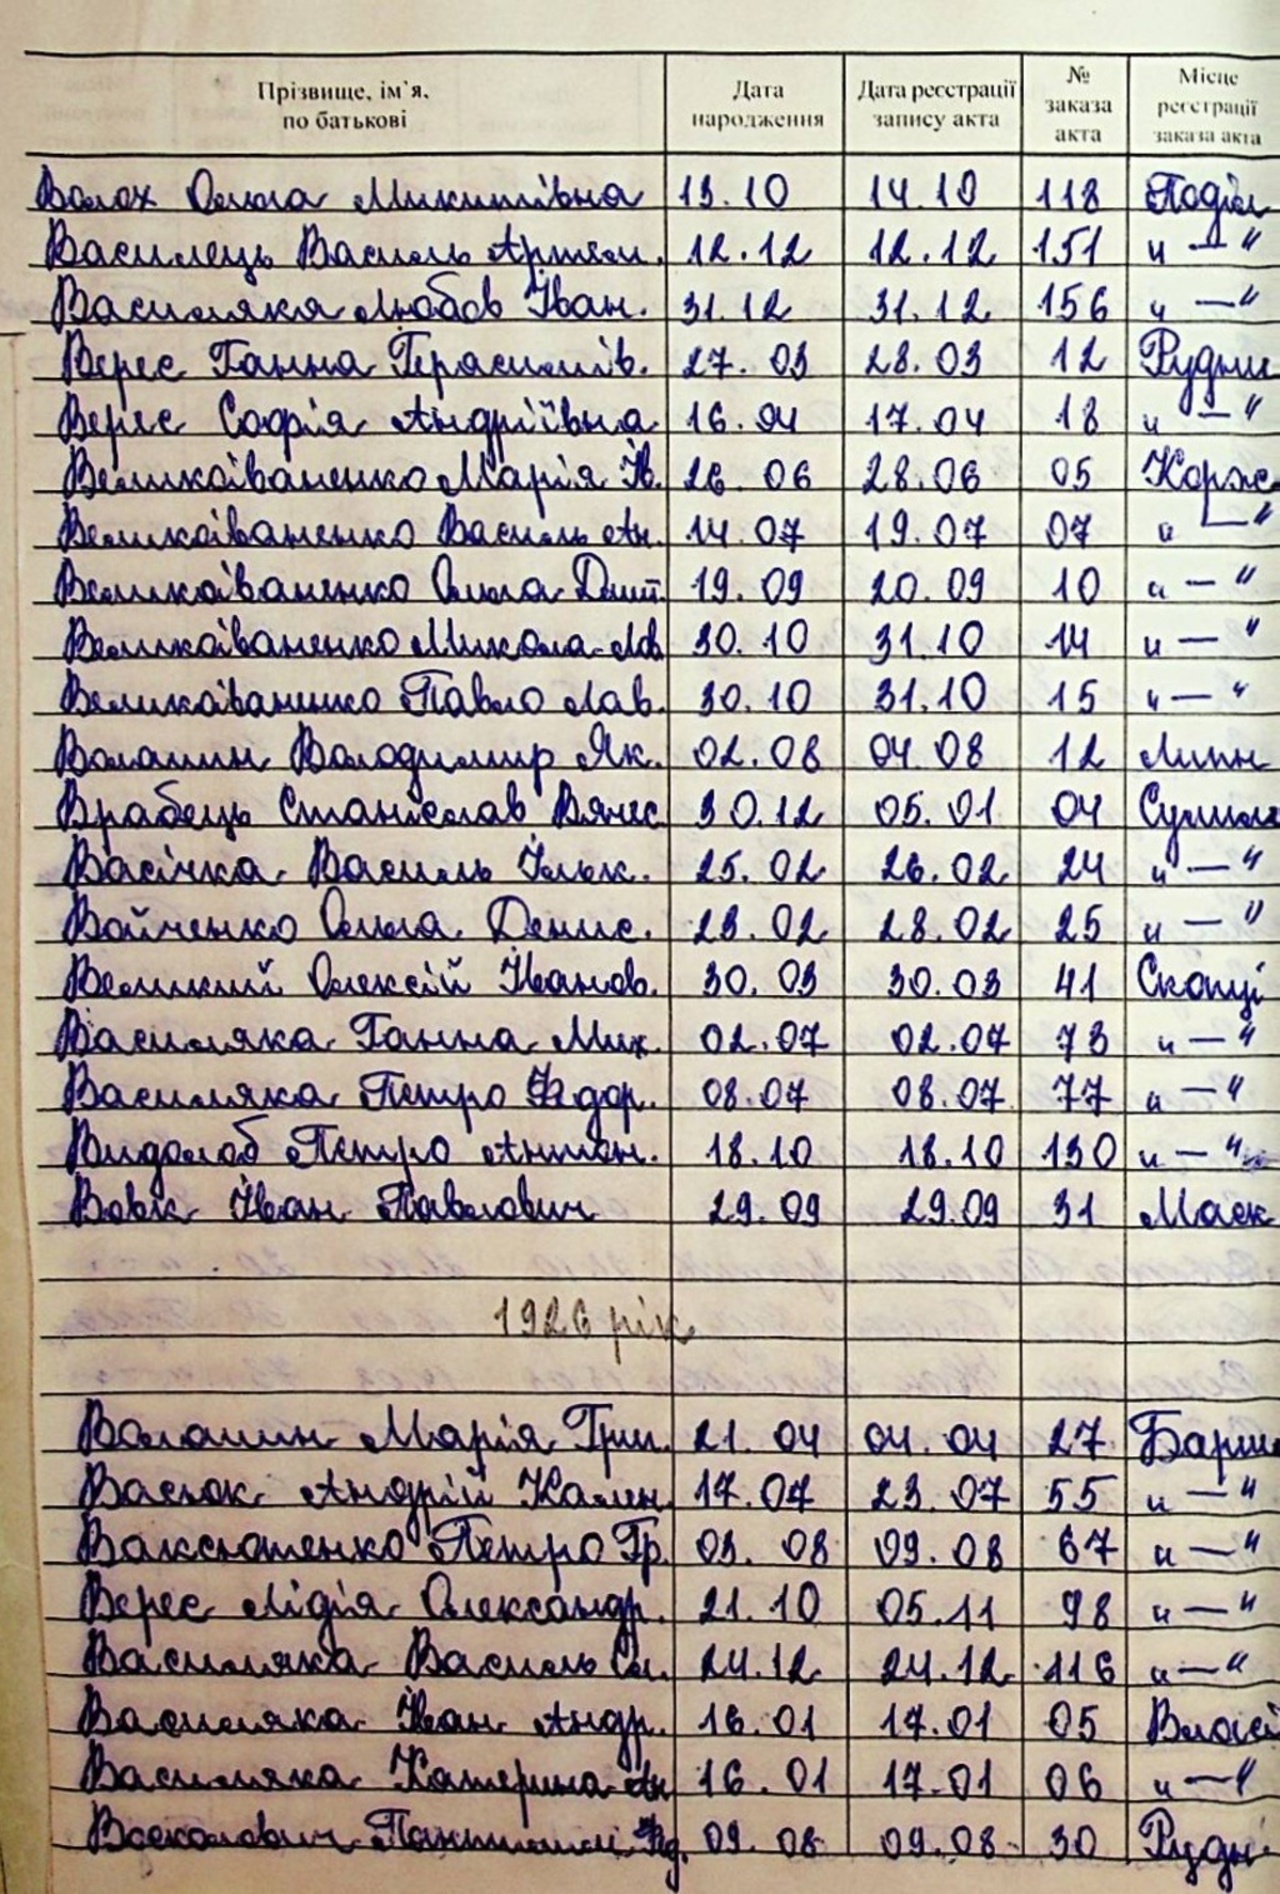 Прізвище, ім'я, по батькові Дата народження Дата реєстрації запису акта № заказа акта Місце реєстрації заказа акта
Волох Ольга Микитівна 13.10 14.10 118 Поділ
Василець Василь Артем. 12.12 12.12 151 " — "
Василяка Любов Іван. 31.12 31.12 156 " — "
Верес Ганна Герасимів. 27.03 28.03 12 Рудни
Верес Софія Андріївна 16.04 17.04 18 " — "
Великоіваненко Марія Ів. 26.06 28.06 05 Корже
Великоіваненко Василь Ан. 14.07 19.07 07 " — "
Великоіваненко Ольга Дмит. 19.09 20.09 10 " — "
Великоіваненко Микола Лав 30.10 31.10 14 " — "
Великоіваненко Павло Лав. 30.10 31.10 15 " — "
Волошин Володимир Як. 02.08 04.08 12 Липн
Врабець Станіслав Вячес 30.12 05.01 04 Сулим
Васічка Василь Ільк. 25.02 26.02 24 " — "
Войченко Ольга Денис. 23.02 28.02 25 " — "
Великий Олексій Іванов. 30.03 30.03 41 Скопці
Василяка Ганна Мих. 02.07 02.07 73 " — "
Василяка Петро Федор. 08.07 08.07 77 " — "
Видолоб Петро Антон. 18.10 18.10 130 " — "
Вовк Іван Павлович 29.09 29.09 31 Маск
1926 рік
Волошин Марія Гри. 21.04 04.04 27 Бариш
Васюк Андрій Кален. 17.07 23.07 55 " — "
Ваксютенко Петро Гр. 03.08 09.08 67 " — "
Верес Лідія Олександр. 21.10 05.11 98 " — "
Василяка Василь 24.12 24.12 116 " — "
Василяка Іван Андр. 16.01 17.01 05 Власі
Василяка Катерина Ан 16.01 17.01 06 " — "
Восколович 09.08 09.08 30 Рудн